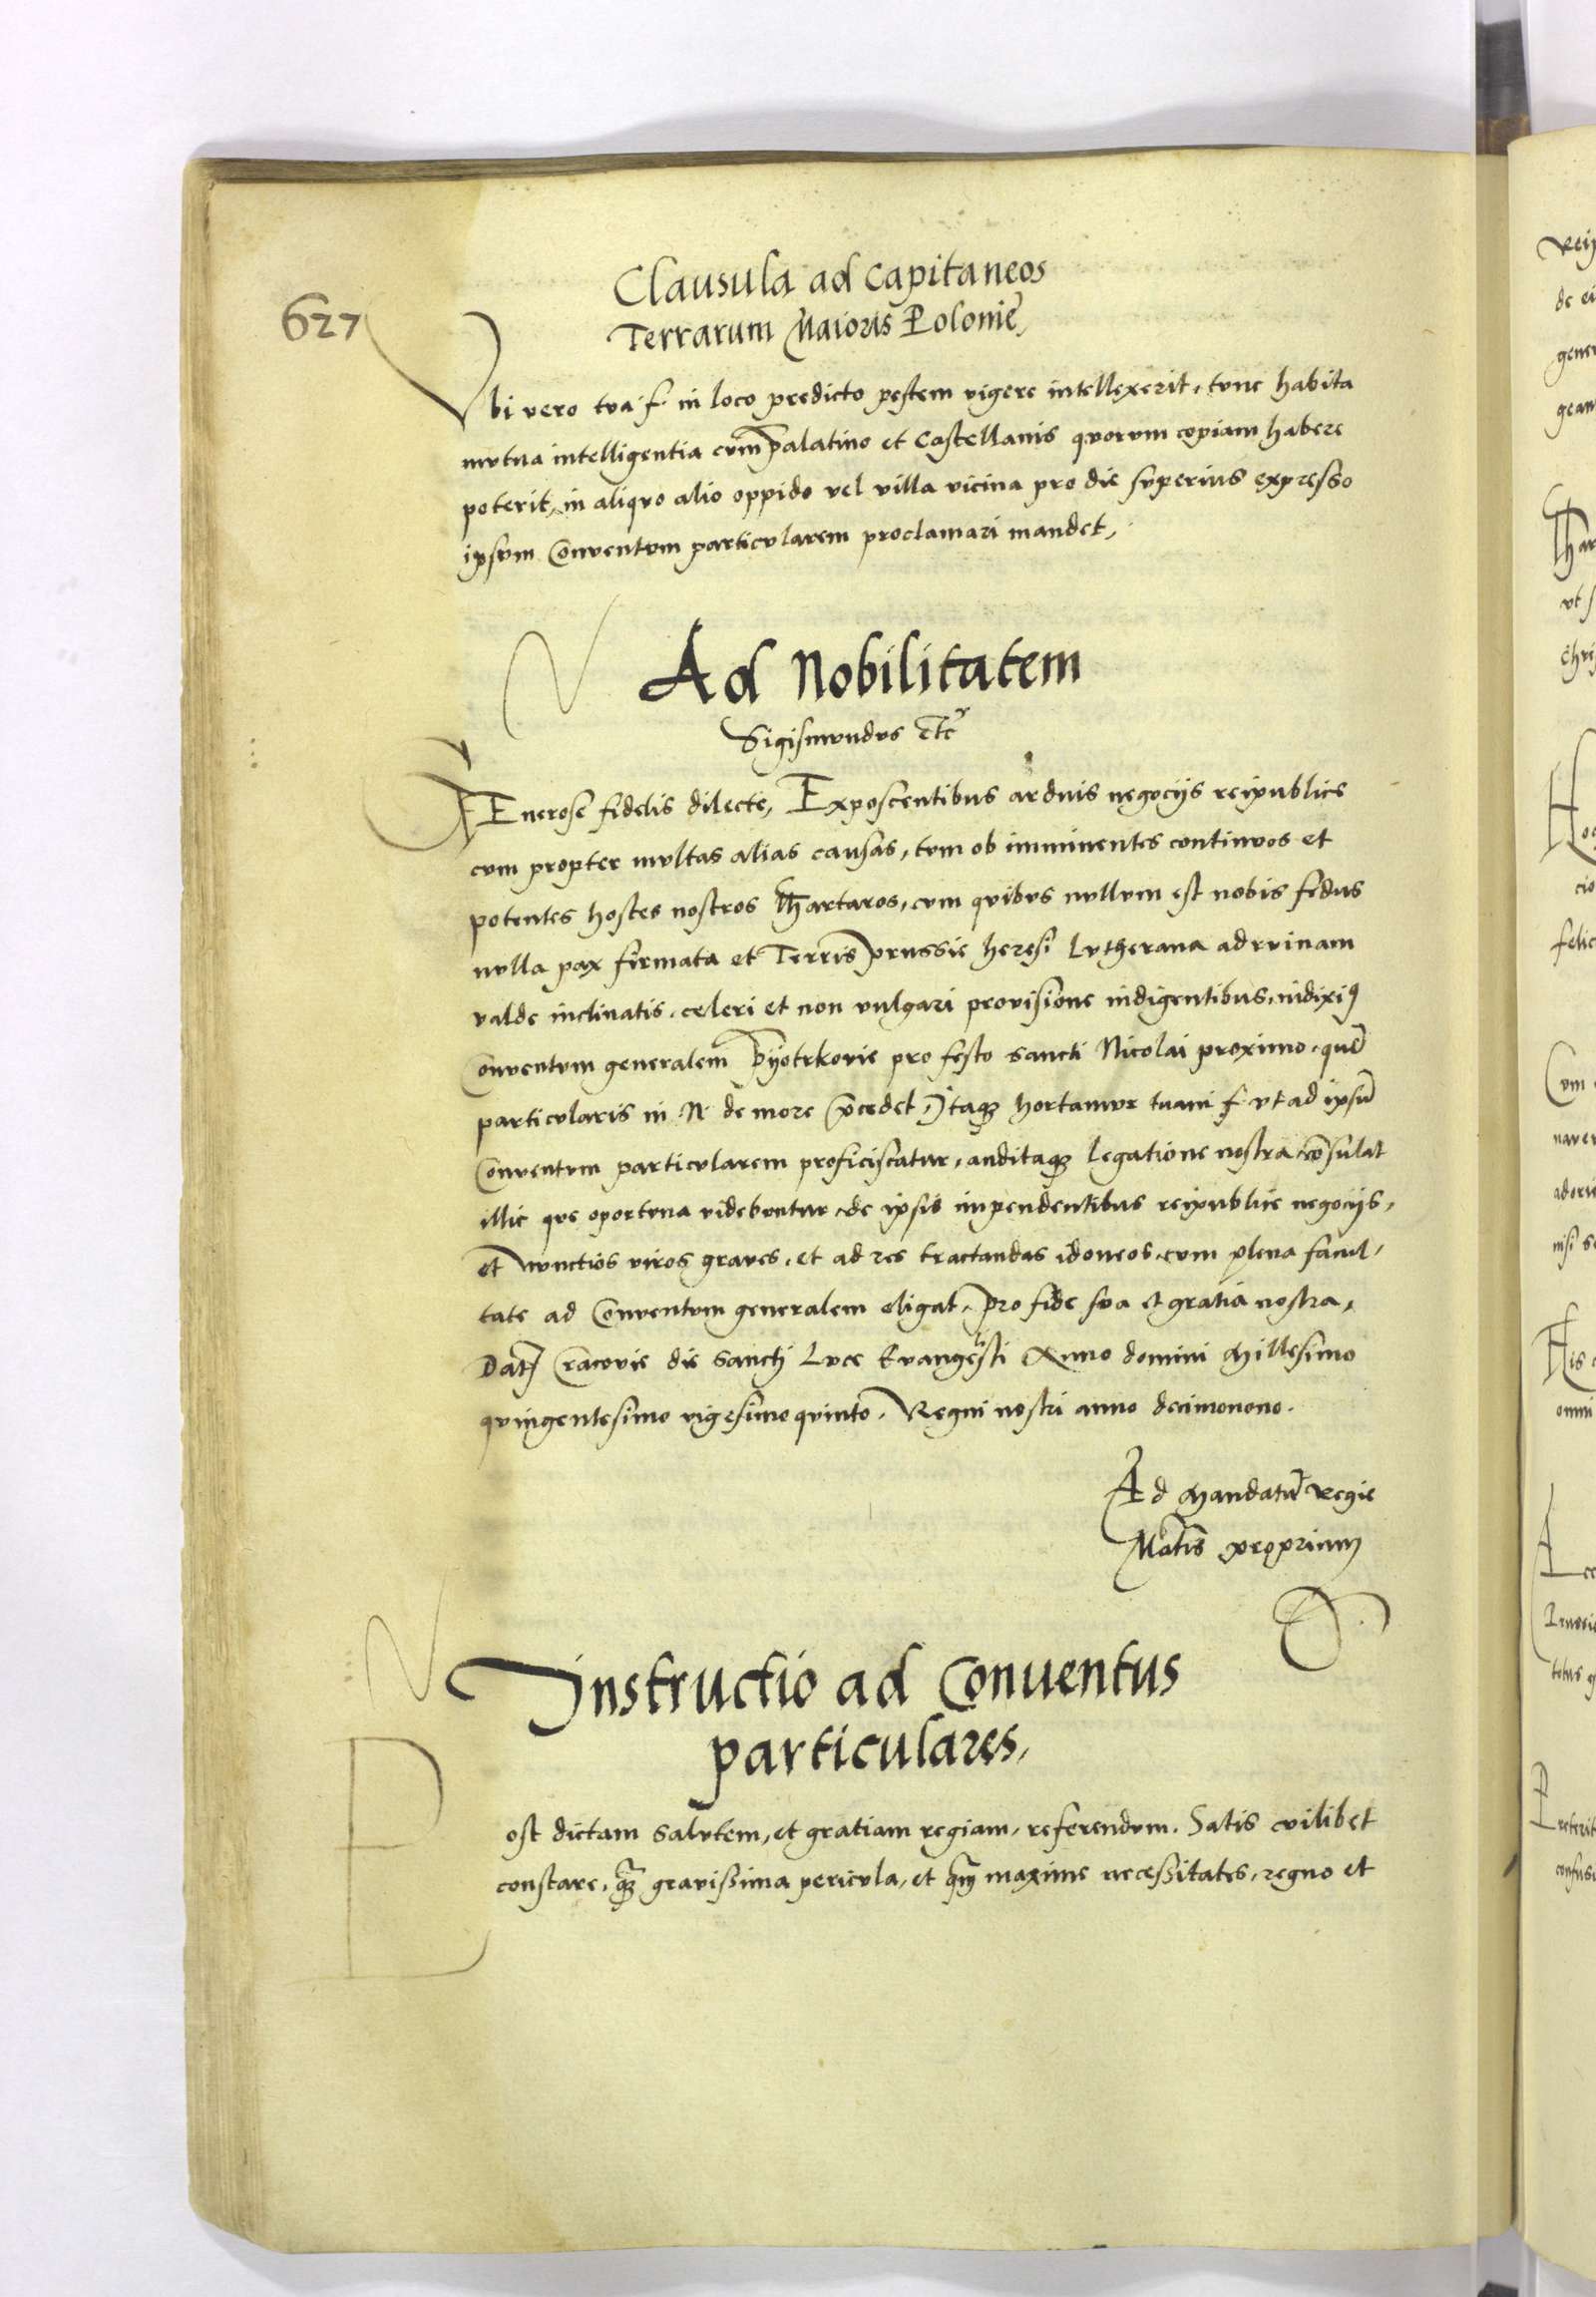 627
Clausula ad Capitaneos
Terrarum Maioris Polonie,
Vbi vero tua f. in loco predicto pestem vigere intellexerit, tvnc habita
mvtua intelligentia cvm palatino et Castellanis qvorvm copiam habere
poterit, in aliqvo alio oppido vel villa vicina pro die svperius expresso
ipsvm Conventvm particvlarem proclamari mandet,
Ad Nobilitatem
Sigismvndvs etc
GEnerose fidelis dilecte, Exposcentibus arduis negocijs reipublice
cvm propter mvltas alias causas, tvm ob imminentes continvos et
potentes hostes nostros Thartaros, cvm qvibvs nvllvm est nobis fedus
nvlla pax firmata et Terris prussie heresi Lvtherana ad rvinam
valde inclinatis, celeri et non vulgari provisione indigentibus, indiximꝰ
Conventvm generalem Pyotrkovie pro festo sancti Nicolai proximo, quē
particvlaris in N. de more p̄cedet, Itaqꝫ hortamvr tuam f. vt ad ipsū
Conventvm particvlarem proficiscatur, auditaqꝫ legatione nostra cōsulat
illic qve oportvna videbvntur de ipsis impendentibus reipublice negocijs,
et nvnctios viros graves, et ad res tractandas idoneos, cvm plena facul,
tate ad Conventvm generalem eligat, pro fide sva et gratia nostra,
Dat̄ Cracovie die sancti Lvce Evangelisti Anno domini Millesimo
qvingentesimo vigesimo qvinto. Regni nostri anno decimonono.
Ad Mandatū Regie
Mātis proprium
Instructio ad Conuentus
particulares,
Post dictam salvtem, et gratiam regiam, referendvm. Satis cvilibet
constare, qꝫ gravissima pericvla, et qm̄ maxime necessitates, regno et